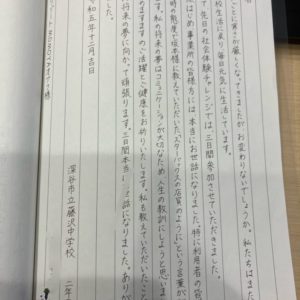 ごとに寒さが厳しくなってきましたが お変わりないでしょうか。私たちはまた
学校生活に戻り 毎日元気に生活しています。
て 先日の社会体験チャレンジでは、三日間 参加させていただきました。
はじめ事業所の皆様方には 本当にお世話になりました。特に利用者の皆
時の態度で坂本様に教えていただいた「スターバックスの店員のように」という言葉が
ます。私の将来の夢はコミュニケーションが大切なため、人生の教訓にしようと思いま
のますますのご活躍とご健康をお祈りいたします。私も教えていただいたこと
の将来の夢に向かって頑張ります。三日間本当に お世話になりました。ありが
和五年十二月吉日
深谷市立藤沢中学校 二年
様